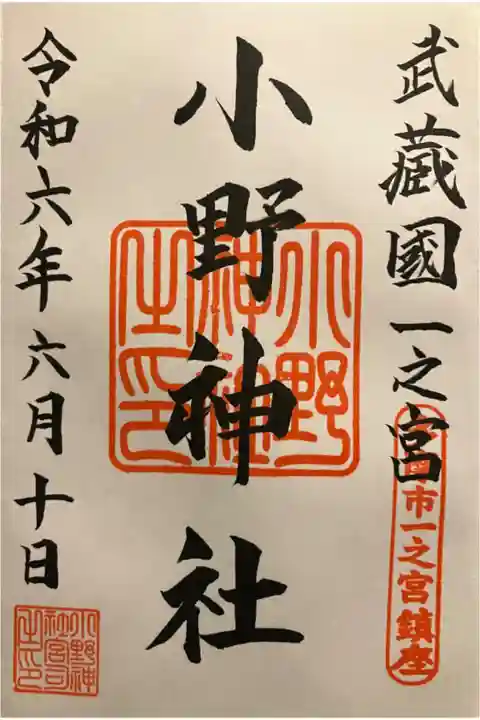 武藏國一之宮
市一之宮鎮座
小野神社
小野神社之印
令和六年六月十日
小野神社宮司之印